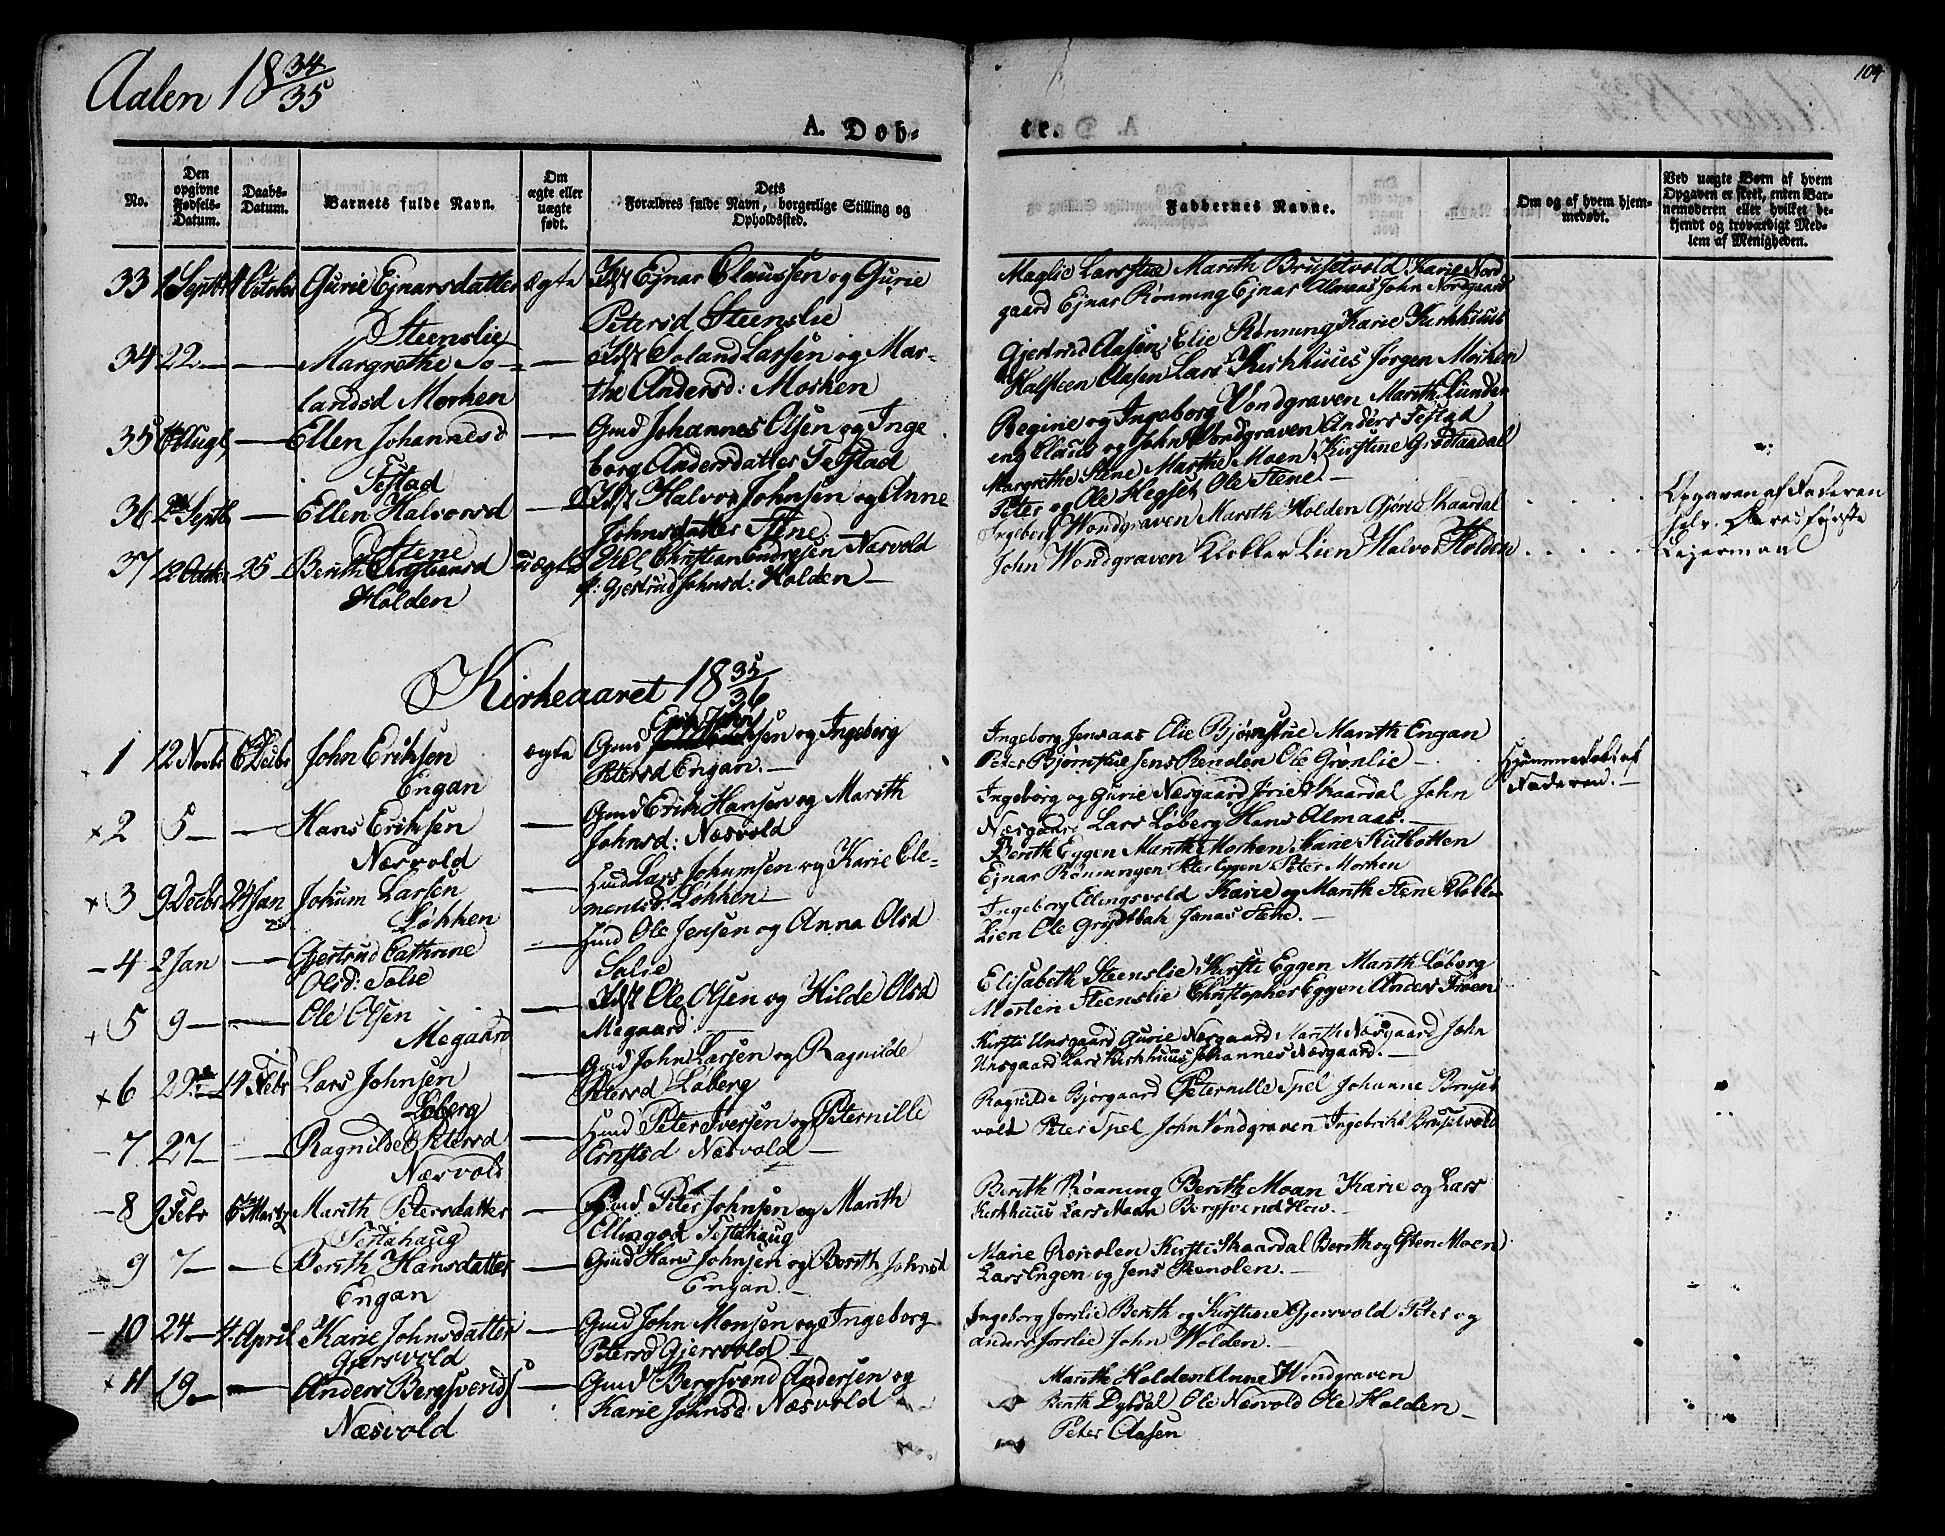 Aalen 18 34/35
104
A. Døb-
te.
No.
Den opgivne Fødsels-Datum.
Daabs-Datum.
Barnets fulde Navn.
Om ægte eller uægte født.
Dets Forældres fulde Navn, borgerlige Stilling og Opholdssted.
Faddernes Navne.
Om og af hvem hjemmedøbt.
Ved uægte Børn af hvem Opgaven er skeet, enten Barnemoderen eller hvilket bekjendt og troværdigt Medlem af Menigheden.
33 1 Septbr Gurie Ejnarsdatter ægte Ejnar Claussen og Gurie
Steenslie Petersd Steenslie
Maglie Larsstue Marith Brusetvold Karie Nord
gaard Ejnar Rønning Ejnar Almaas John Nordgaard
34 22 — — Margrethe Jo- — Joland Larsen og Mar-
landsd Morken the Andersd: Morken
Gjertrud Aasen Elie Rønning Karie Kirkhuus
Halsteen Aasen Lars Kirkhuus Jørgen Morken
35 Augt — Ellen Johannesd — Gmd Johannes Olsen og Inge
Testad borg Andersdatter Testad
Regine og Ingeborg Vondgraven Marith Lunden
eng Claus og John Vondgraven Anders Testad
36 Septb — Ellen Halvorsd — Halvor Johnsen og Anne
Stene Johnsdatter Stene
Margrethe Stene Marithe Moen Kirstine Grødtaadal
Peter og Ole Hegset Ole Stene.—
37 12 Octbr 25 — Berith Christiansd uægte Christian Endresen Næsvold
Holden p: Gjertrud Johnsd: Holden —
Ingeborg Wondgraven Marith Holden Gjørie Skaardal
John Wondgraven Klokker Lien Halvor Holden
Opgaven af Faderen
selv. Deres første
Lejermaal
Kirkeaaret 18 35/36
1 12 Novbr 6 Decbr John Eriksen ægte Gmd Erik Johnsen og Ingeborg
Engan Petersd Engan.—
Ingeborg Jensaas Elie Bjørnstue Marith Engan
Peter Bjørnstue Jens Renolen Ole Grønlie —
Hjemmedøbt af
Faderen.—
× 2 5 — — Hans Eriksen — Gmd Erik Hansen og Marith
Næsvold Johnsd: Næsvold
Ingeborg og Gurie Næsgaard Jørie Skaardal John
Næsgaard Lars Løberg Hans Almaas.—
× 3 9 Decbr 24 Jan Johum Larsen — Huus Lars Johumsen og Karie Cle-
Løkken mentsd Løkken —
Berith Eggen Marith Morken Karie Kulbotten
Ejnar Rønningen Peter Eggen Peter Morken
- 4 2 Jan — Gjertrud Cathrine — Huus Ole Jensen og Anna Olsd
Olsd: Solie Solie
Ingeborg Ellingsvold Karie og Marith Stene Klokker
Lien Ole Grytbak Jonas Stene.—
× 5 9 — — Ole Olsen — Ole Olsen og Hilde Olsd
Megaard Megaard
Elisabeth Steenslie Kirsti Eggen Marith Løberg
Morten Steenslie Christopher Eggen Anders Trøen
× 6 29 — 14 Febr Lars Johnsen — Gmd John Larsen og Ragnilde
Løberg Petersd Løberg
Kirsti Unsgaard Gurie Næsgaard Marith Næsgaard John
Unsgaard Lars Kirkhuus Johannes Næsgaard.—
- 7 27 — — Ragnilde Petersd — Huus Peter Iversen og Peternille
Næsvold Ernstsd Næsvold —
Ragnilde Bjørgaard Peternille Spel Johanne Bruset
vold Peter Spel John Vondgraven Ingebrikt Brusetvold
- 8 9 Febr 6 Marts Marith Petersdatter — Peter Johnsen og Marith
Testahaug Ellingsd Testahaug
Berith Rønning Berith Moan Karie og Lars
Kirkhuus Lars Moan Bergsvend How.—
9 7 — — Berith Hansdatter — Gmd Hans Johnsen og Berith Johnsd
Engan Engan.—
Marie Renolen Kirsti Skaardal Berith og Esten Moen
Lars Engen og Jens Renolen.—
- 10 24 — 4 April Karie Johnsdatter — Gmd John Monsen og Ingeborg
Gjersvold Petersd Gjersvold —
Ingeborg Jorslie Berith og Kirstine Gjersvold Peter og
Anders Jorslie John Wolden.—
× 11 19 — — Anders Bergsvends — Gmd Bergsvend Andersen og
Næsvold Karie Johnsd Næsvold
Marithe Holden Anne Wondgraven
Berith Dybdal Ole Næsvold Ole Holden —
Peter Aasen